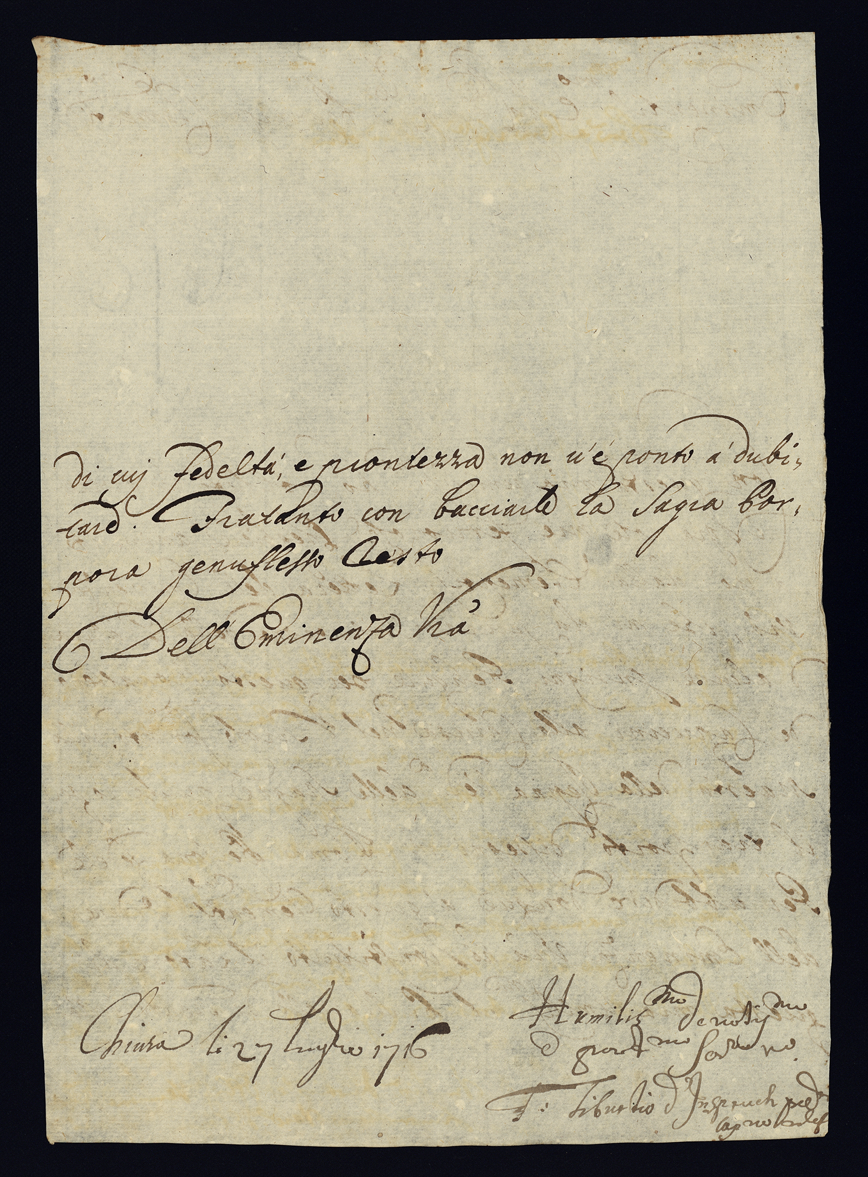 di cuj fedeltà, e prontezza non v'è ponto à dubi-
tare. Fratanto con bacciarle la Sagra Por-
pora genuflesso Resto
Dell'Eminenza Vrã
Chiusa li 27 Luglio 1716
Humilis.mo Devotis.mo
F: Tiburtio d'Inspruch